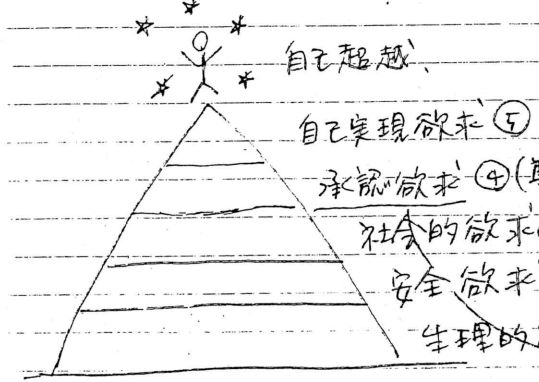 自己超越、
自己実現欲求 ⑤
承認欲求 ④(
社会的欲求
安全欲求
生理的